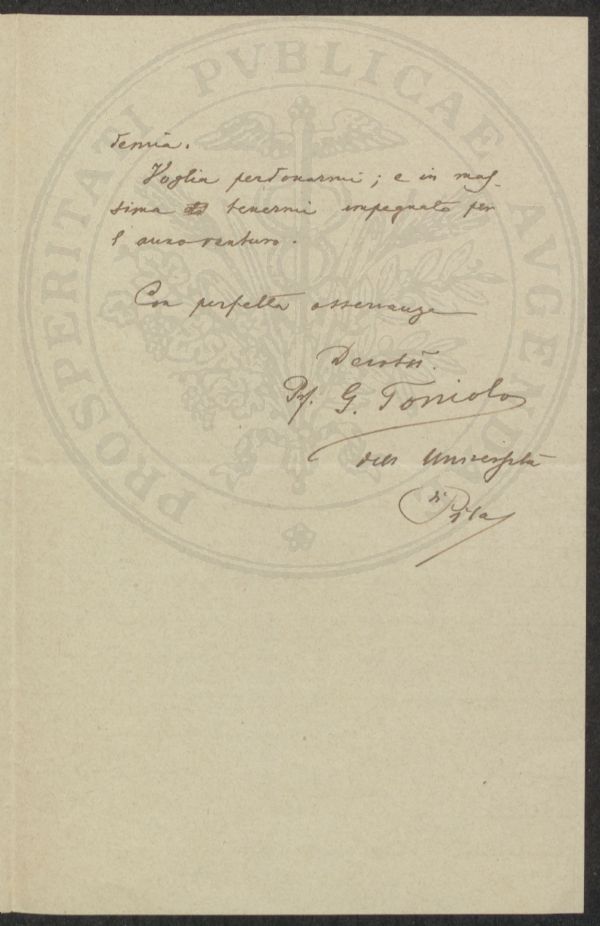 PROSPERITATI PVBLICAE AVGENDAE
demia.
Voglia perdonarmi; e in mas-
sima tenermi impegnato per
l'anno venturo.
Con perfetta osservanza
Devotis.
Prof. G. Toniolo
dell Università
di Pisa